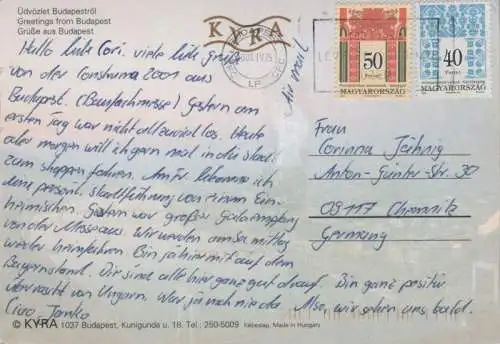 Üdvözlet Budapestről
Greetings from Budapest
Grüße aus Budapest
KYRA
Hallo liebe Cori. viele liebe Grüße
von der Construma 2001 aus
Budapest. (Baufachmesse) Gestern am
ersten Tag war nicht allzuviel los. Heute
oder morgen will ich gern mal in die Stadt
zum shoppen fahren. Am Fr. bekomme ich
eine persönl. Stadtführung von einem Ein-
heimischen. Gestern war großer Galaempfang
von der Messe aus. Wir werden am Sa. mittag
wieder heimfahren. Bin ja hier mit auf dem
Bayernstand. Wir sind alle hier ganz gut drauf. Bin ganz positiv
überrascht von Ungarn. War ja noch nie da. Also, wir sehen uns bald.
Ciao
Air mail
50
Forint
MAGYARORSZÁG
40
Forint
MAGYARORSZÁG
Frau
Corinna Jähnig
Anton-Günter-Str. 30
09117 Chemnitz
Germany
© KYRA 1037 Budapest, Kunigunda u. 18. Tel.: 250-5009 Képeslap, Made in Hungary